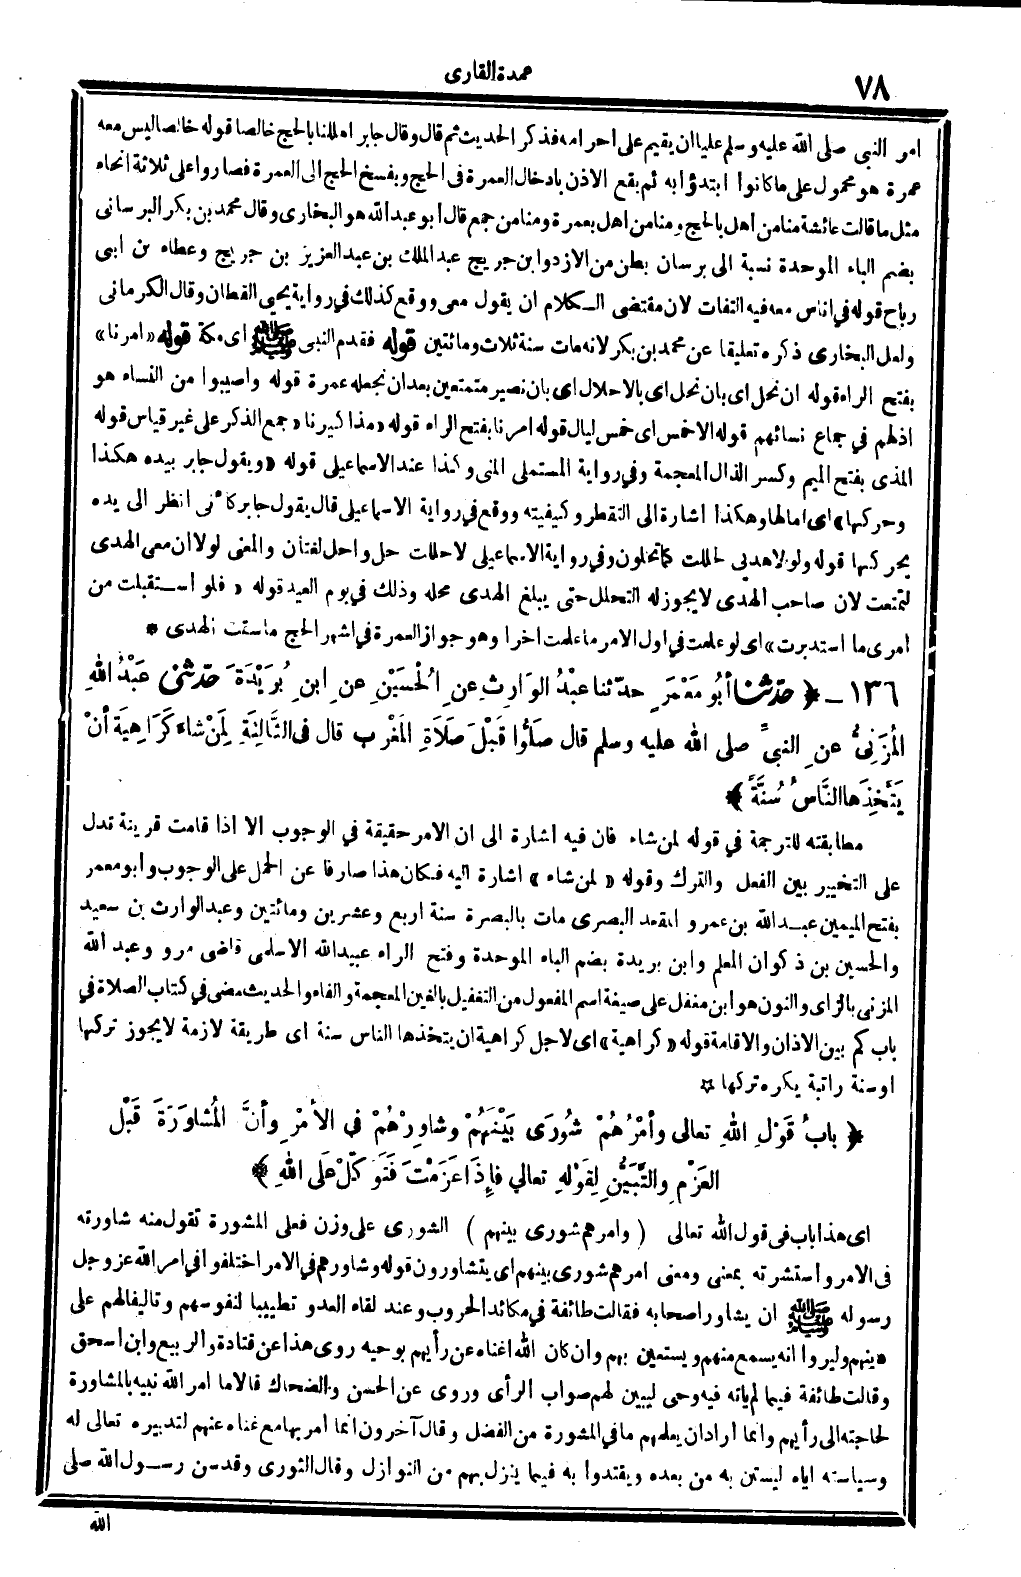 ٧٨
عمدة القارى
امر النبي صلى الله عليه وسلم عليا ان يقيم على احرامه فذكر الحديث ثم قال وقال جابر اهللنا بالحج خالصا قوله خالصا ليس معه
عمرة هو محمول على ما كانوا ابتدؤا به ثم يقع الاذن بادخال العمرة فى الحج وبفسخ الحج الى العمرة فصاروا على ثلاثة انحاء
مثل ما قالت عائشة منا من اهل بالحج ومنا من اهل بعمرة ومنا من جمع قال ابو عبد الله هو البخارى وقال محمد بن بكر البرسانى
بضم الباء الموحدة نسبة الى برسان بطن من الازد وابن جريج عبد الملك بن عبد العزيز بن جريج وعطاء بن أبى
رباح قوله فى اناس معه فيه التفات لان مقتضى الكلام ان يقول معى ووقع كذلك في رواية يحيى القطان وقال الكرمانى
ولعل البخارى ذكره تعليقا عن محمد بن بكر لانه مات سنة ثلاث ومائتين قوله فقدم النبى ﷺ اى مكة قوله «امرنا»
بفتح الراء قوله ان نحل اى بان نحل اى بالاحلال اى بان نصير متمتعين بعد ان نجعله عمرة قوله واصيبوا من النساء هو
اذلهم في جماع نسائهم قوله الا خمس اى خمس ليال قوله امرنا بفتح الراء قوله «مذا كيرنا» جمع الذكر على غير قياس قوله
المذى بفتح الميم وكسر الذال المعجمة وفي رواية المستملى المنى وكذا عند الاسماعيلى قوله «ويقول جابر بيده هكذا
وحركها» اى امالها وهكذا اشارة الى التقطر وكيفيته ووقع في رواية الاسماعيلى قال يقول جابر كأنى انظر الى يده
يحركها قوله ولولا هديي لحللت كما تحلون وفى رواية الاسماعيلى لاحللت حل واحل لغتان والمعنى لولا ان معى الهدى
لتمتعت لان صاحب الهدى لا يجوز له التحلل حتى يبلغ الهدى محله وذلك في يوم العيد قوله «فلو استقبلت من
امرى ما استدبرت» اى لو علمت في اول الامر ما علمت اخرا وهو جواز العمرة في اشهر الحج ما سقت الهدى *
١٣٦ ـ ﴿ حدّثنا أبُو مَعْمَرٍ حدّثنا عبْدُ الوَارِثِ عنِ الْحُسَيْنِ عنِ ابنِ بُرَيْدَةَ حَدّثنى عَبْدُ اللهِ
المُزَنِىُّ عنِ النبيِّ صلى الله عليه وسلم قال صَلُّوا قَبْلَ صَلَاةِ المَغْرِبِ قال فى الثَّالِثَةِ لِمَنْ شاءَ كَرَاهِيَةَ أنْ
يَتَّخِذَها النَّاسُ سُنَّةً ﴾
مطابقته للترجمة في قوله لمن شاء فان فيه اشارة الى ان الامر حقيقة في الوجوب الا اذا قامت قرينة تدل
على التخيير بين الفعل والترك وقوله «لمن شاء» اشارة اليه فكان هذا صارفا عن الحمل على الوجوب وأبو معمر
بفتح الميمين عبد الله بن عمرو المقعد البصرى مات بالبصرة سنة اربع وعشرين ومائتين وعبد الوارث بن سعيد
والحسين بن ذكوان المعلم وابن بريدة بضم الباء الموحدة وفتح الراء عبيد الله الاسلمى قاضى مرو وعبد الله
المزنى بالزاى والنون هو ابن مغفل على صيغة اسم المفعول من التغفيل بالغين المعجمة والفاء والحديث مضى في كتاب الصلاة في
باب كم بين الاذان والاقامة قوله «كراهية» اى لاجل كراهية ان يتخذها الناس سنة اى طريقة لازمة لا يجوز تركها
او سنة راتبة يكره تركها *
﴿ بابُ قَوْلِ اللهِ تعالى وأمْرُهُمْ شُورَى بَيْنَهُمْ وشاوِرْهُمْ في الأمْرِ وأنَّ المُشاوَرَةَ قَبْلَ
العَزْمِ والتَّبَيُّنِ لِقَوْلِهِ تعالي فإِذَا عَزَمْتَ فَتَوَكَّلْ عَلَى اللهِ ﴾
اى هذا باب فى قول الله تعالى (وامرهم شورى بينهم) الشورى على وزن فعلى المشورة تقول منه شاورته
فى الامر واستشرته بمعنى ومعنى امرهم شورى بينهم اى يتشاورون قوله وشاورهم في الامر اختلفوا في امر الله عز وجل
رسوله ﷺ ان يشاور اصحابه فقالت طائفة في مكائد الحروب وعند لقاء العدو تطييبا لنفوسهم وتاليفا لهم على
دينهم وليروا انه يسمع منهم ويستعين بهم وان كان الله اغناه عن رأيهم بوحيه روى هذا عن قتادة والربيع وابن اسحق
وقالت طائفة فيما لم ياته فيه وحى ليبين لهم صواب الرأى وروى عن الحسن والضحاك قالا ما امر الله نبيه بالمشاورة
لحاجته الى رأيهم وانما أراد ان يعلمهم ما في المشورة من الفضل وقال آخرون انما أمر بها مع غناه عنهم لتدبيره تعالى له
وسياسته اياه ليستن به من بعده ويقتدوا به فيما ينزل بهم من النوازل وقال الثورى وقد سن رسول الله صلى
الله